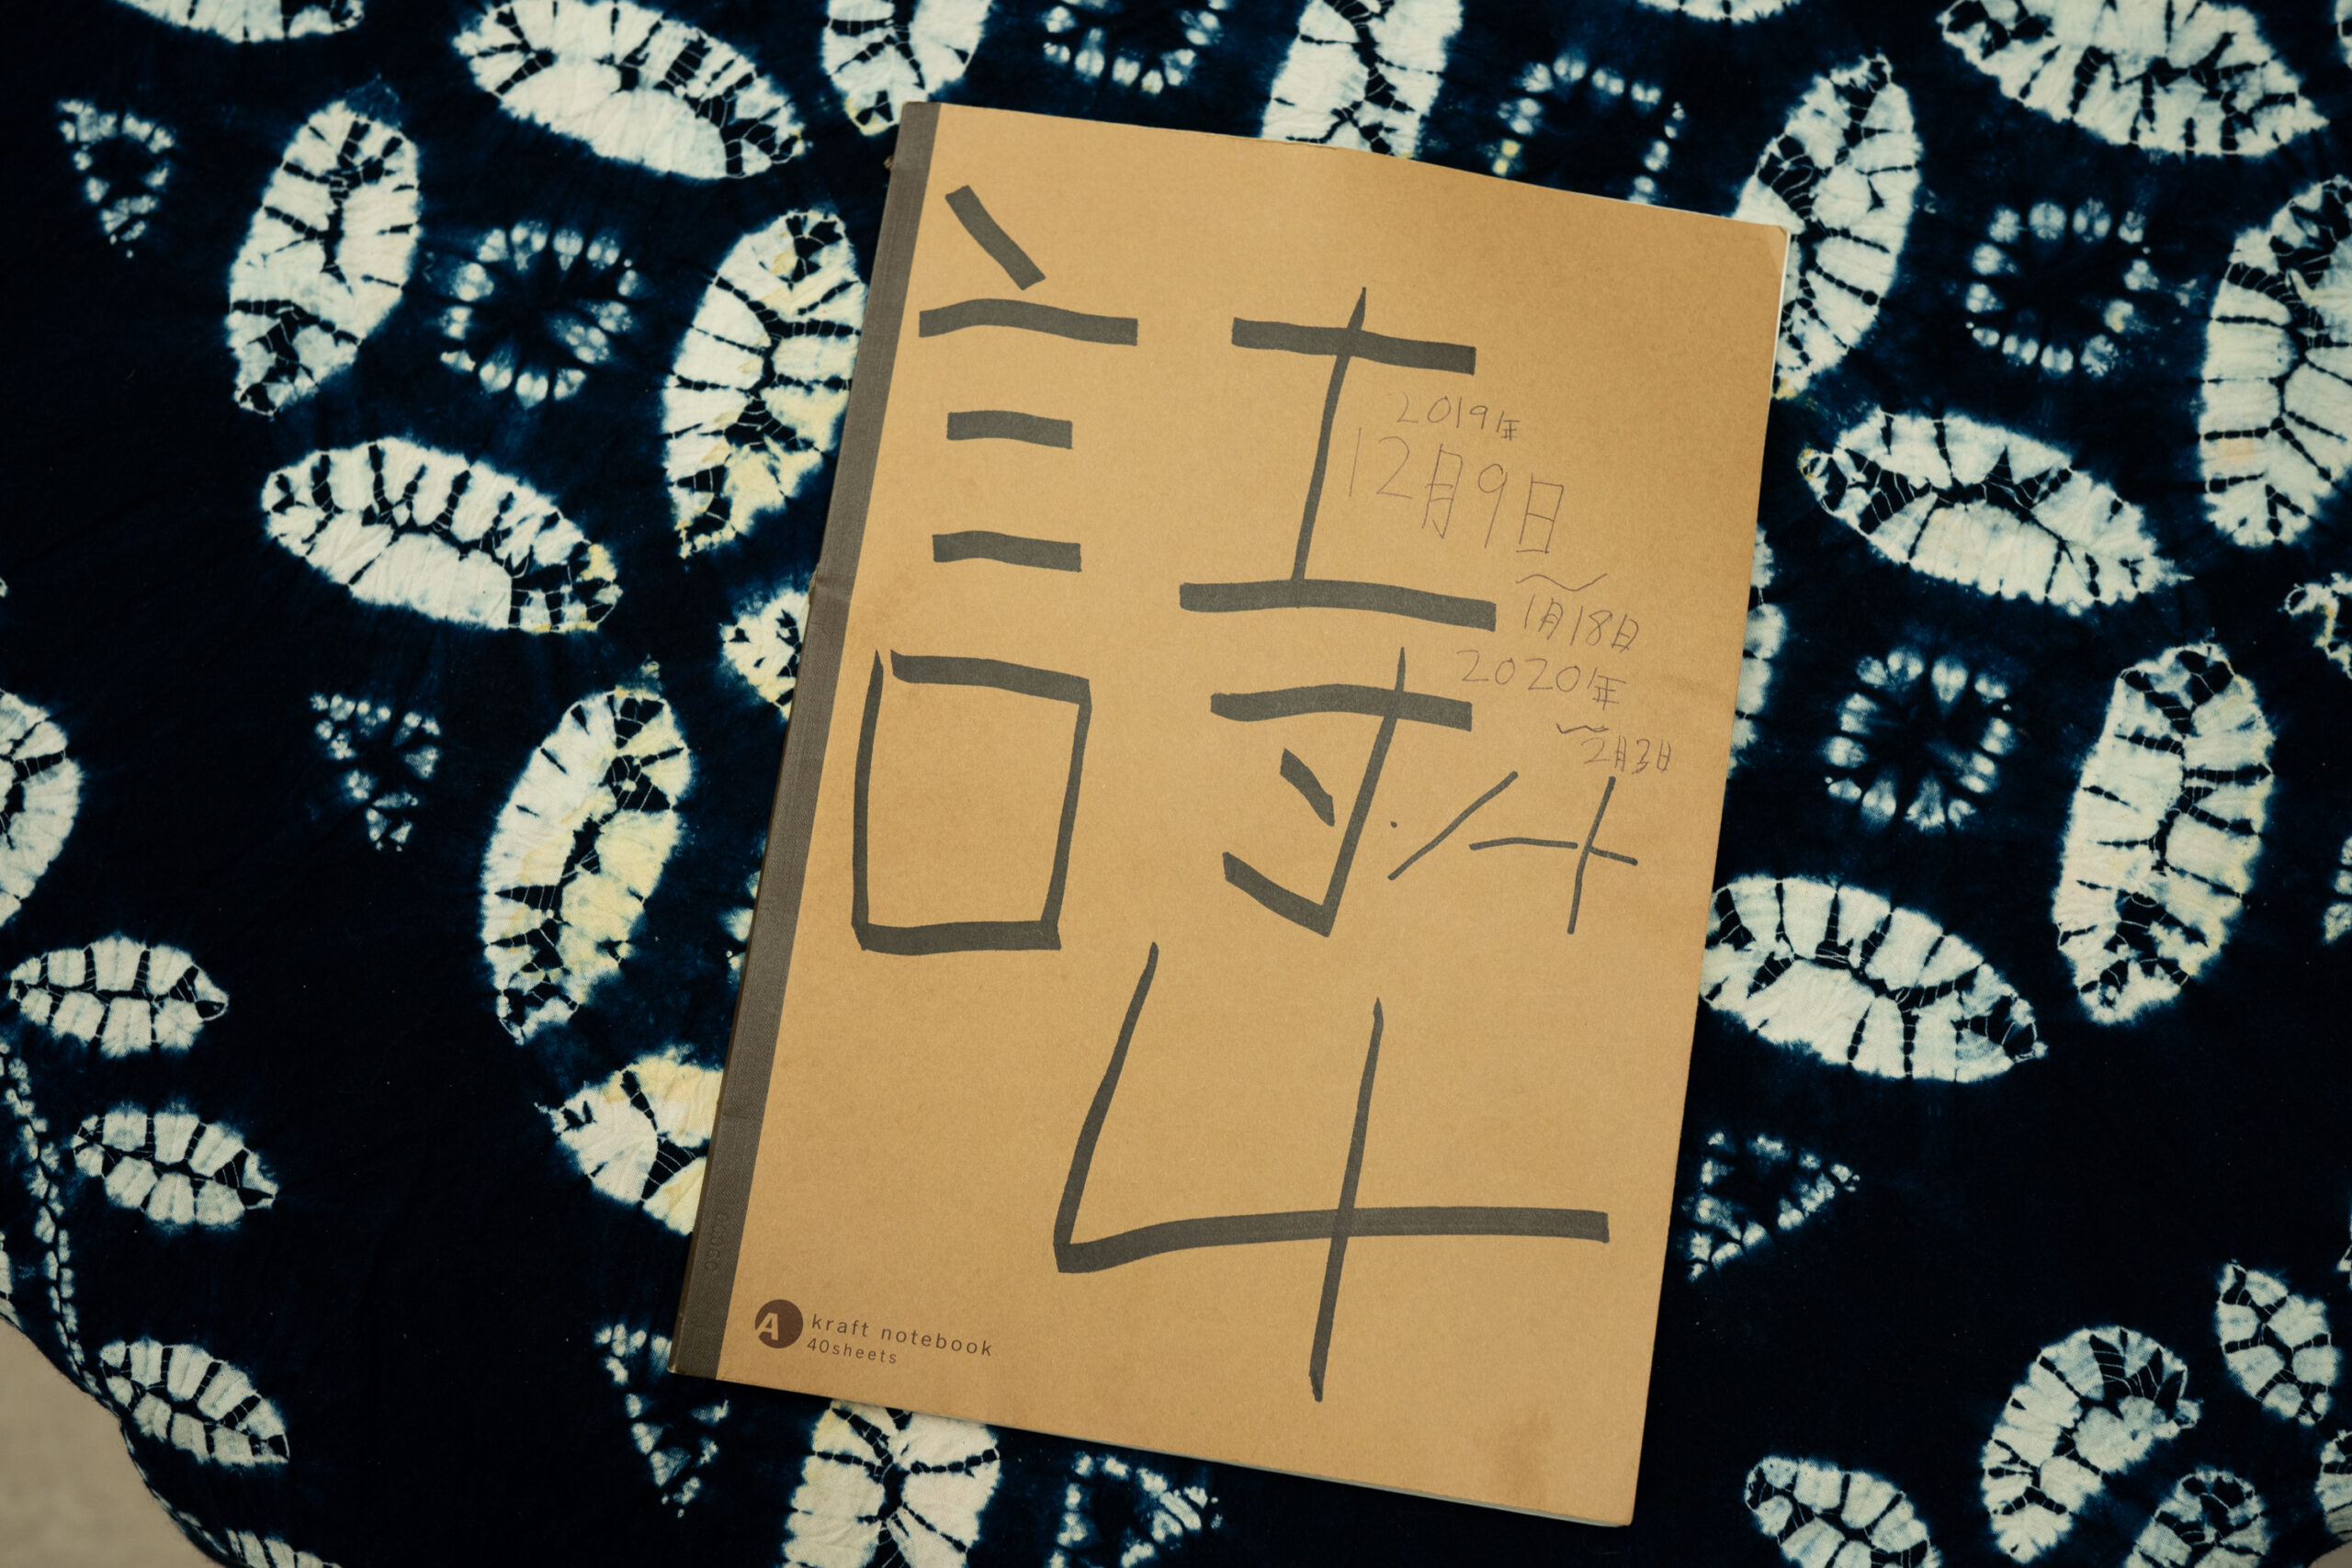 詩
2019年
12月9日
〜
1月18日
2020年
〜
2月3日
ノート
4
A kraft notebook
40sheets